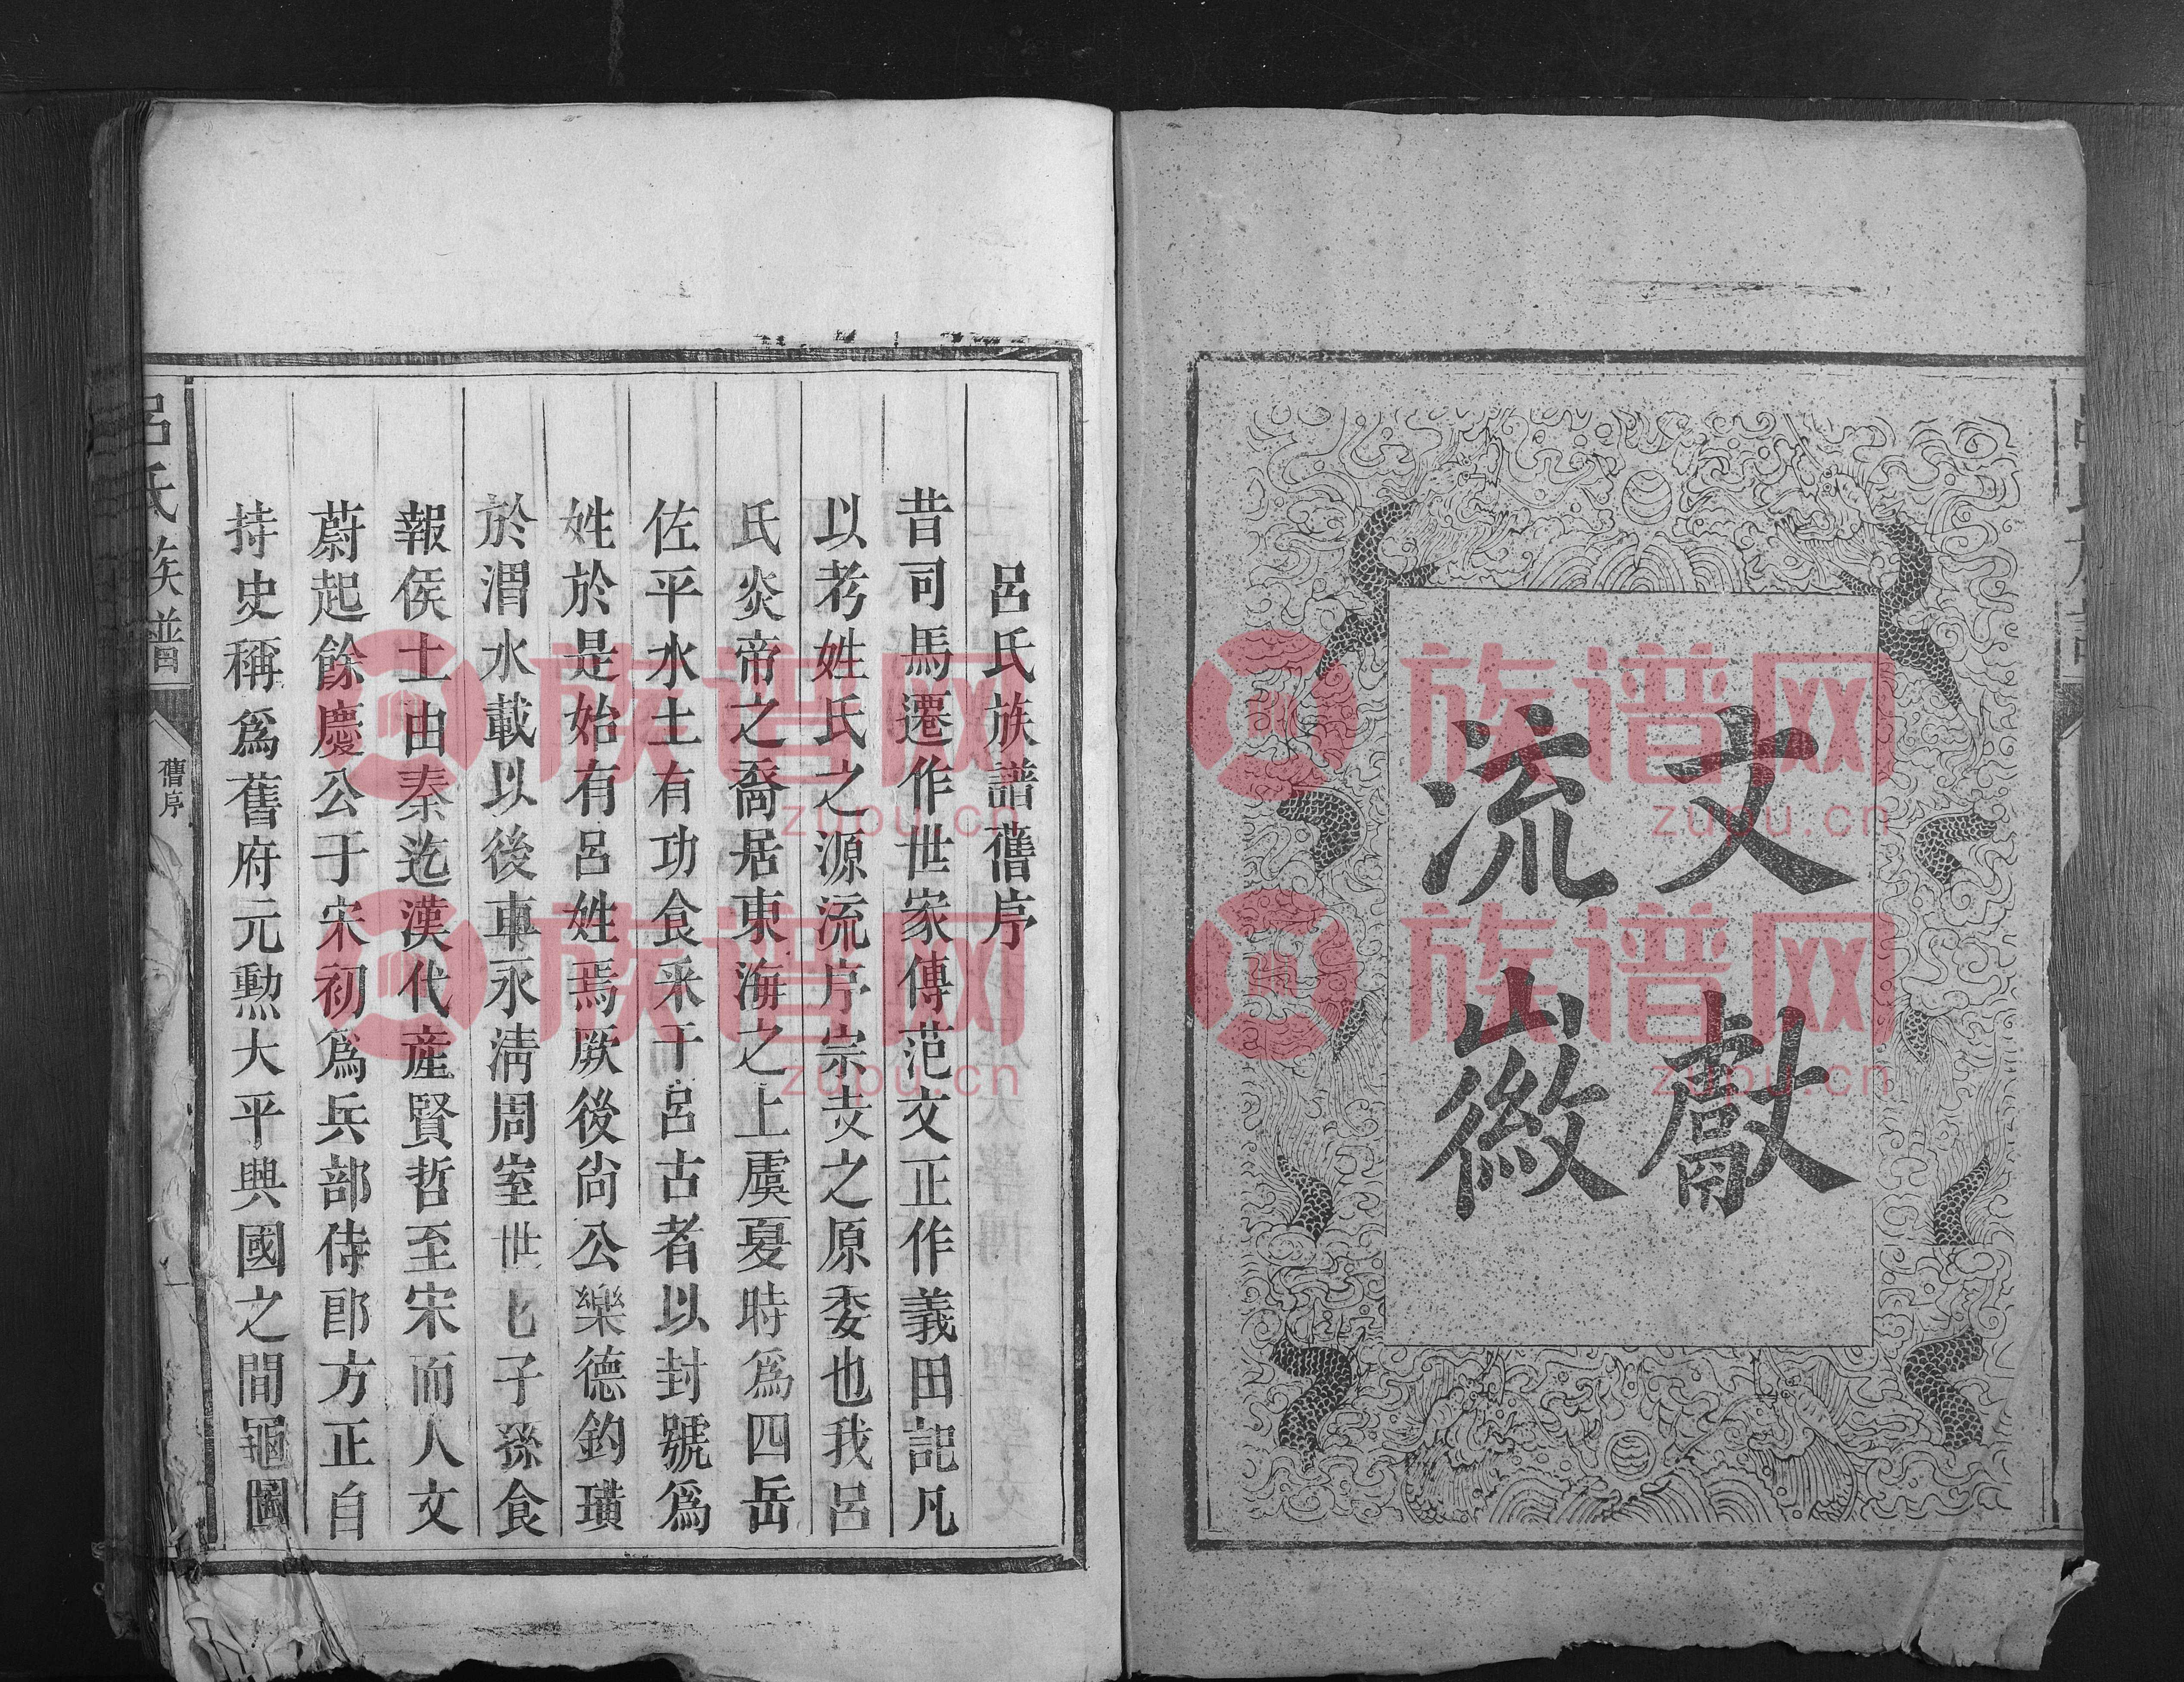 文獻
流徽
呂氏族譜舊序
昔司馬遷作世家傳范文正作義田記凡
以考姓氏之源流序宗支之原委也我呂
氏炎帝之裔居東海之上虞夏時為四岳
佐平水土有功食采于呂古者以封號為
姓於是始有呂姓焉厥後尚公樂德釣璜
於渭水載以後車永清周室世七子孫食
報侯土由秦迄漢代產賢哲至宋而人文
蔚起餘慶公于宋初為兵部侍郎方正自
持史稱為舊府元勲大平興國之間龜圖
呂氏族譜
舊序
一
族谱网
zupu.cn
族谱网
zupu.cn
族谱网
zupu.cn
族谱网
zupu.cn